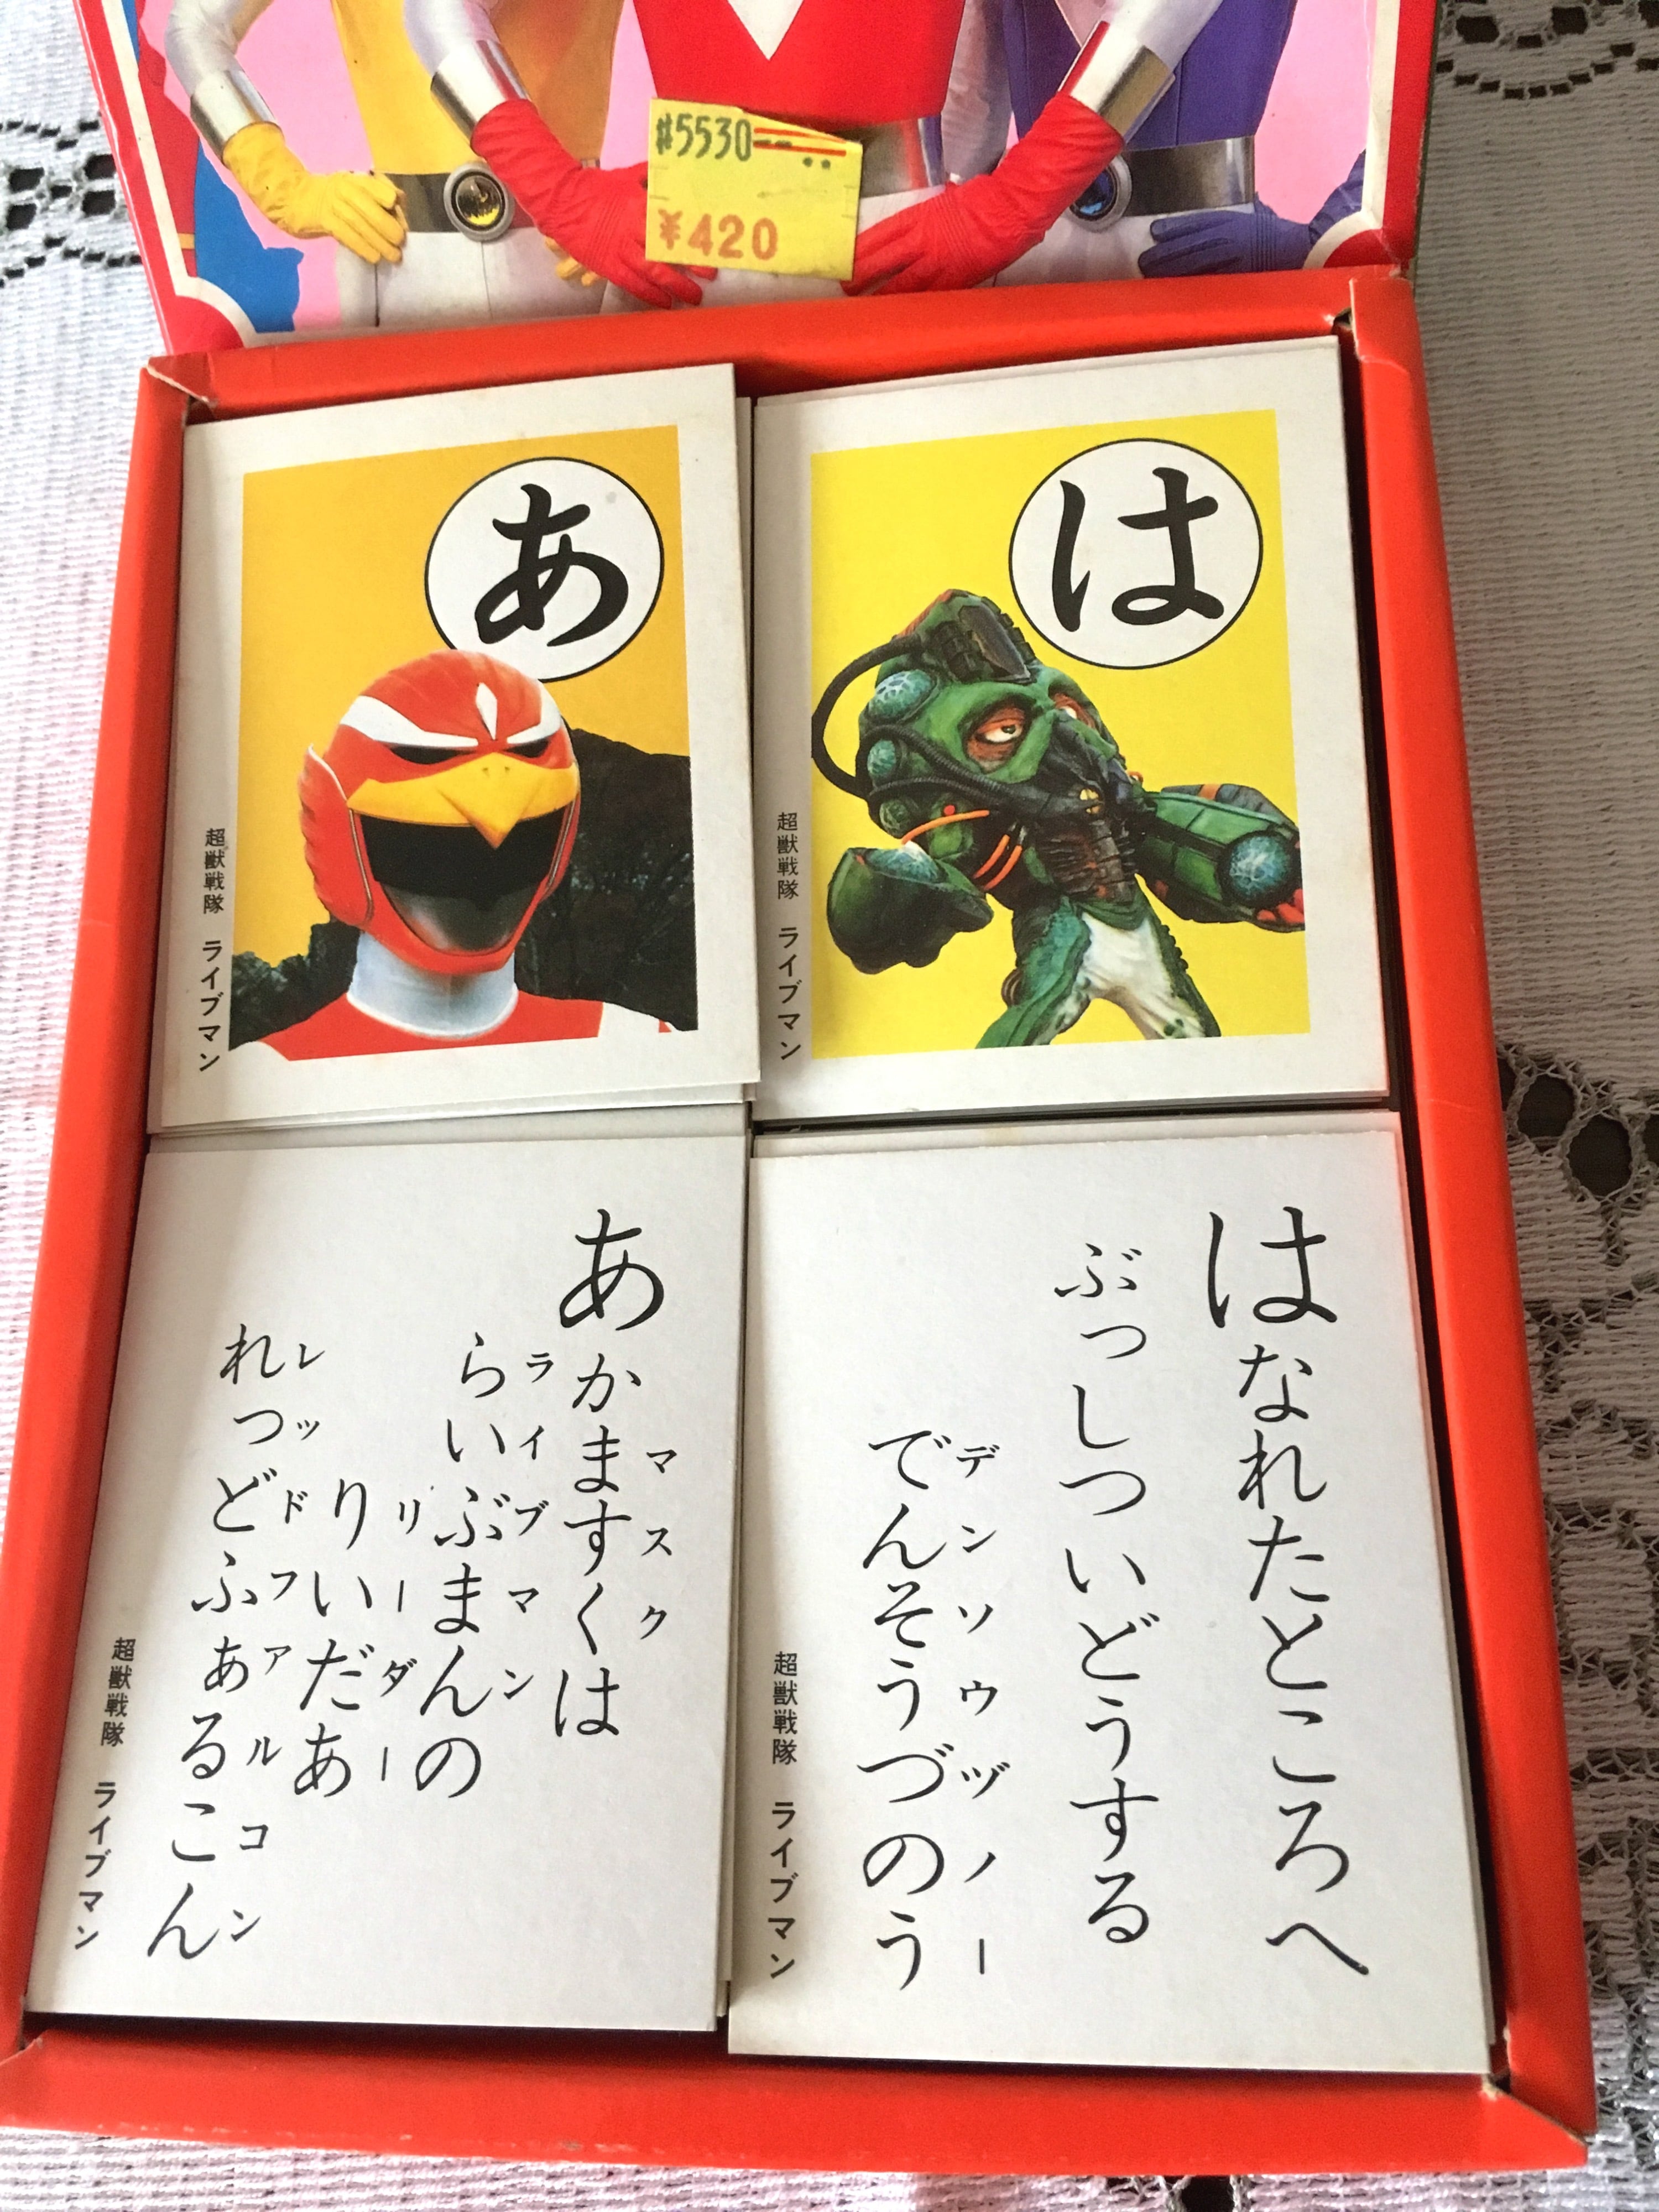 #5530
¥420
あ
超獣戦隊 ライブマン
は
超獣戦隊 ライブマン
あかますくは
マスク
らいぶまんの
ライブマン
りいだあ
リーダー
れっどふぁるこん
レッドファルコン
超獣戦隊 ライブマン
はなれたところへ
ぶっしついどうする
でんそうづのう
デンソウヅノー
超獣戦隊 ライブマン